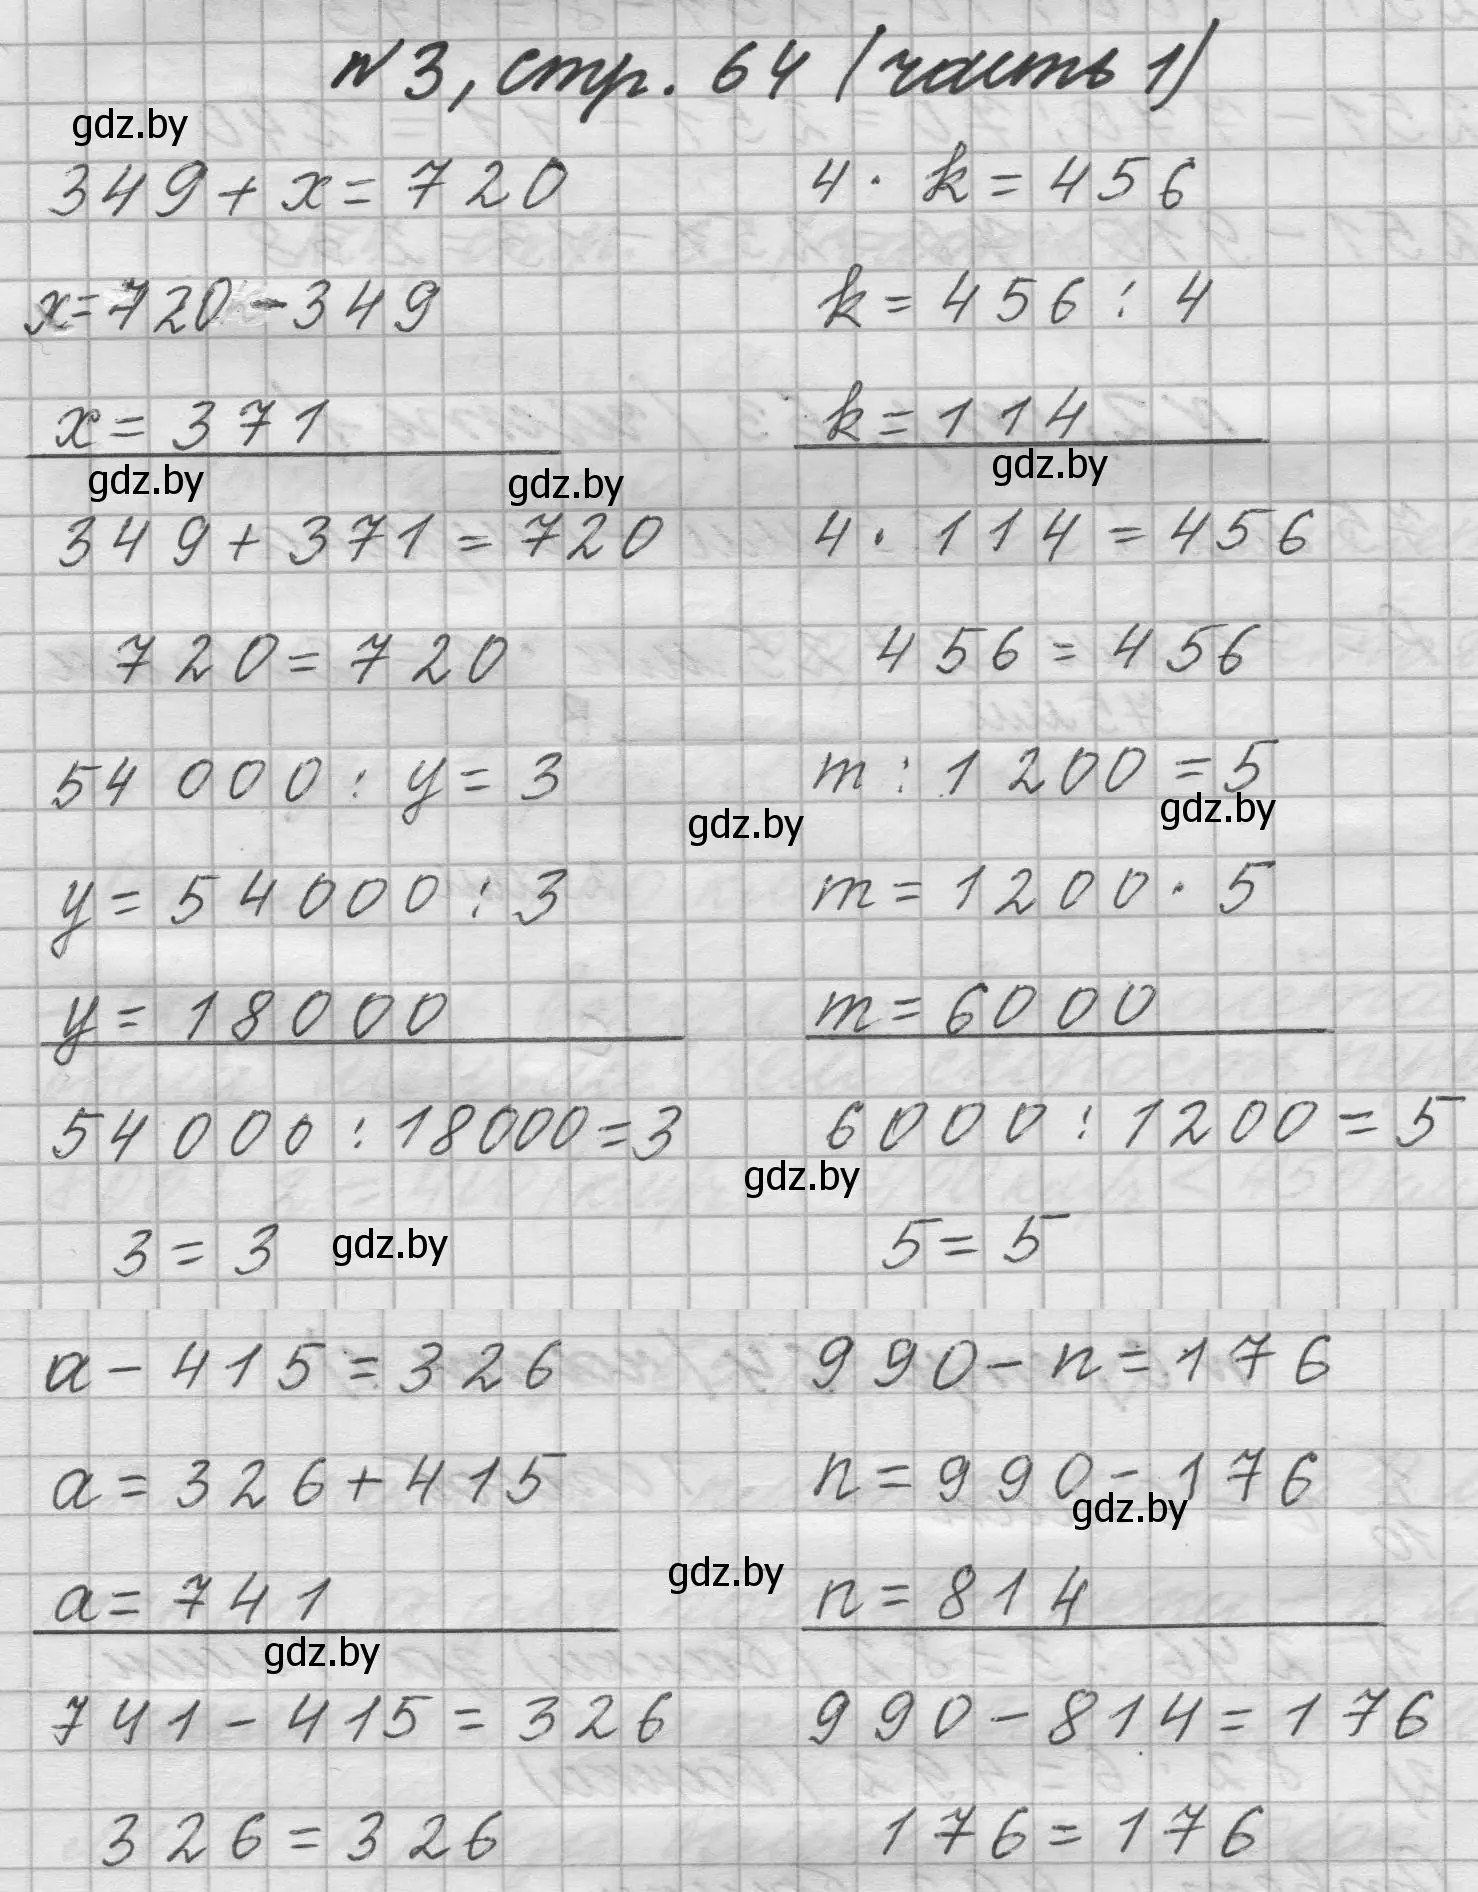 №3, стр. 64 (часть 1)
gdz.by
349 + x = 720
x = 720 - 349
x = 371
gdz.by
gdz.by
349 + 371 = 720
720 = 720
4 · k = 456
k = 456 : 4
k = 114
gdz.by
4 · 114 = 456
456 = 456
54 000 : y = 3
gdz.by
y = 54000 : 3
y = 18000
54 000 : 18000 = 3
gdz.by
3 = 3
gdz.by
m : 1 200 = 5
gdz.by
m = 1200 · 5
m = 6000
6000 : 1200 = 5
5 = 5
a - 415 = 326
a = 326 + 415
a = 741
gdz.by
gdz.by
741 - 415 = 326
326 = 326
990 - n = 176
n = 990 - 176
gdz.by
n = 814
990 - 814 = 176
176 = 176